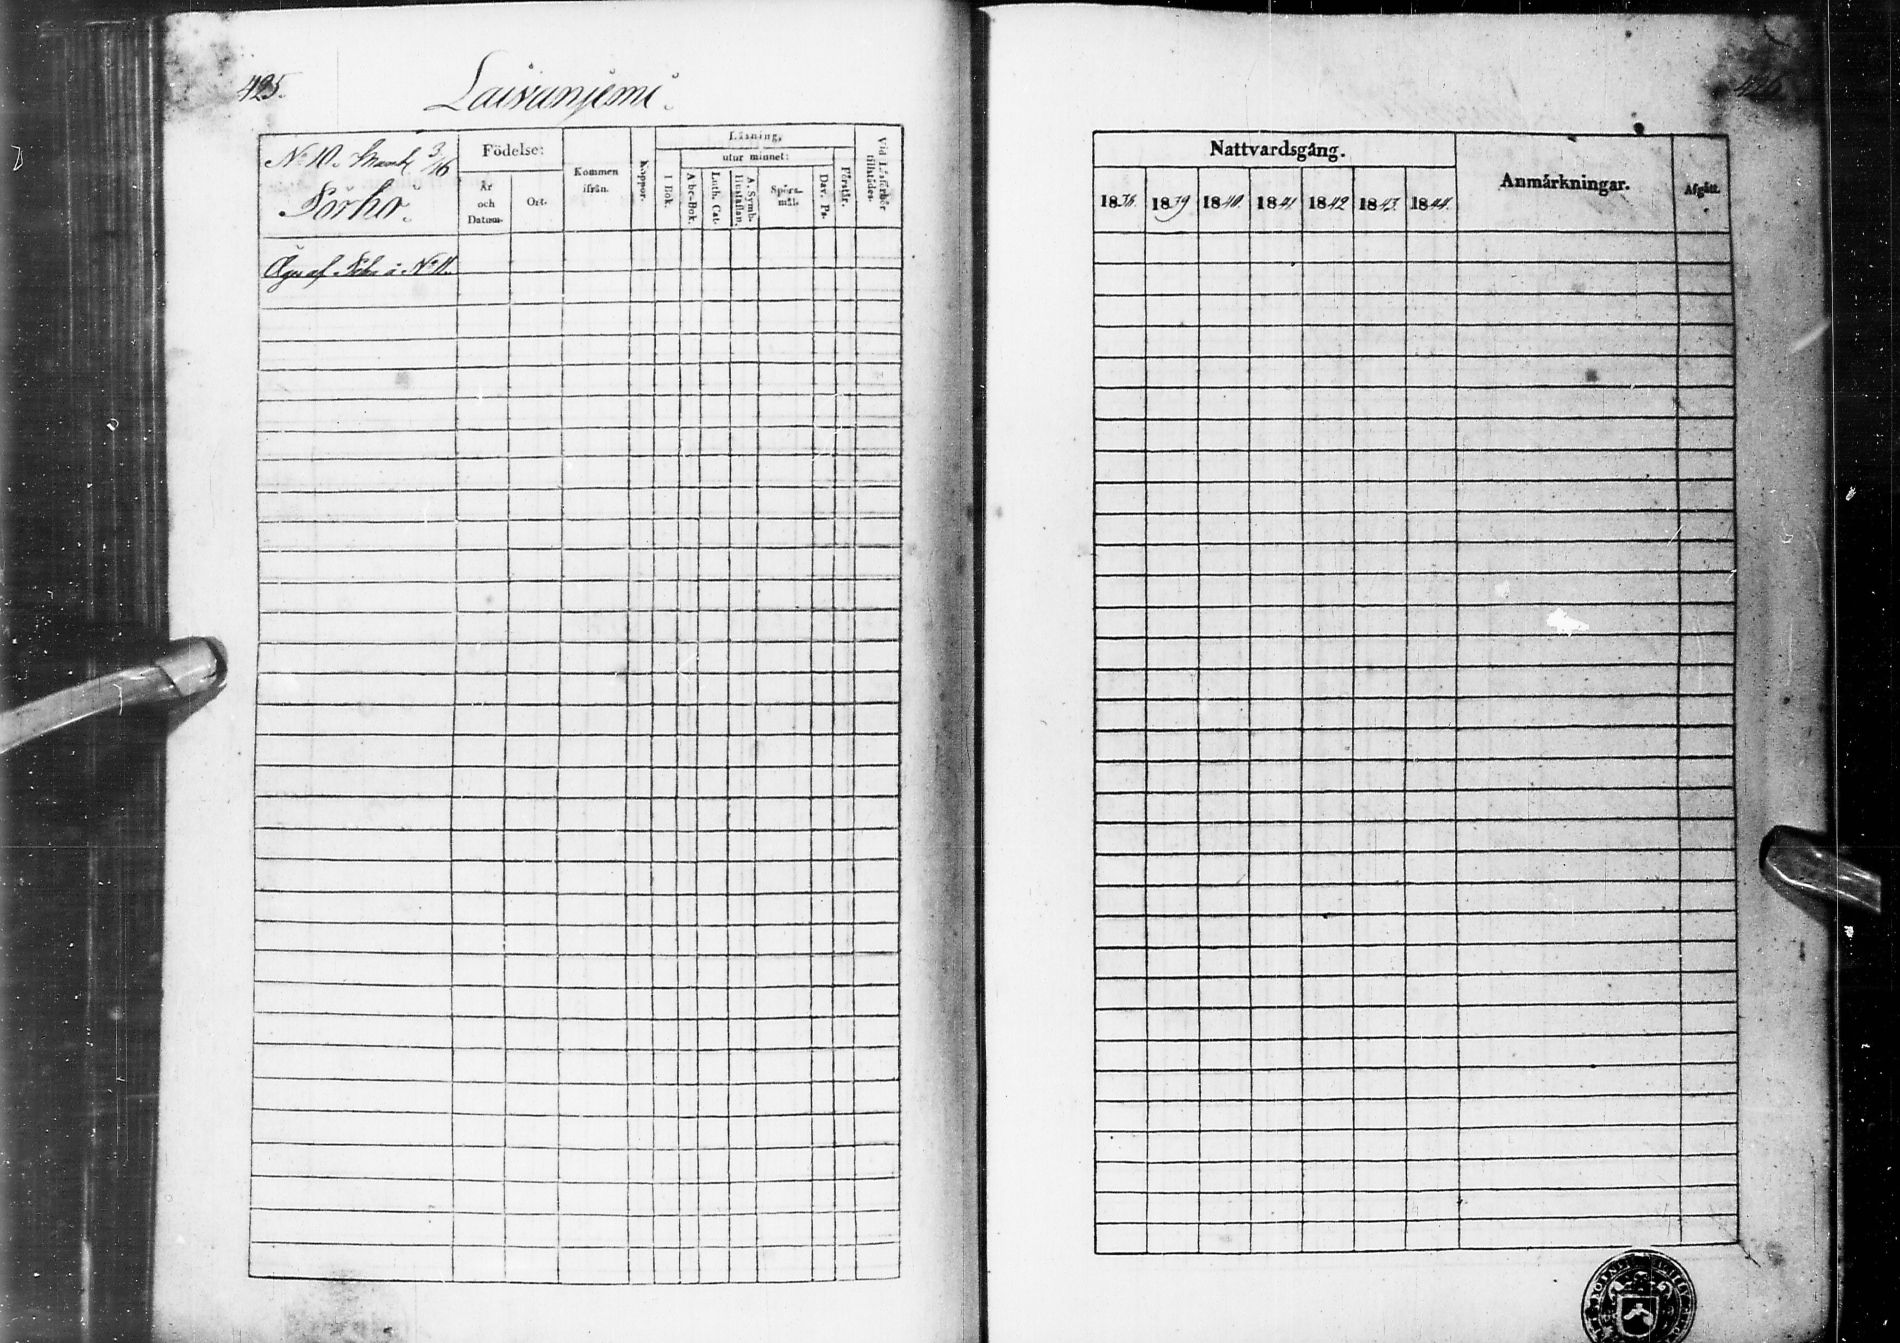 425.
Laivaniemi.
No 10. Mantal 3/16
Porho.
Födelse:
År och Datum.
Ort.
Kommen ifrån.
Koppor.
Läsning,
utur minnet:
I Bok.
Abc-Bok.
Luth. Cat.
A. Symb. Hustaflan.
Spörsmål.
Dav. Ps.
Förstår.
Vid Läsförhör tillstädes.
Äges af å No 11.
426.
Nattvardsgång.
1838. 1839 1840. 1841 1842 1843. 1844.
Anmärkningar.
Afgått.